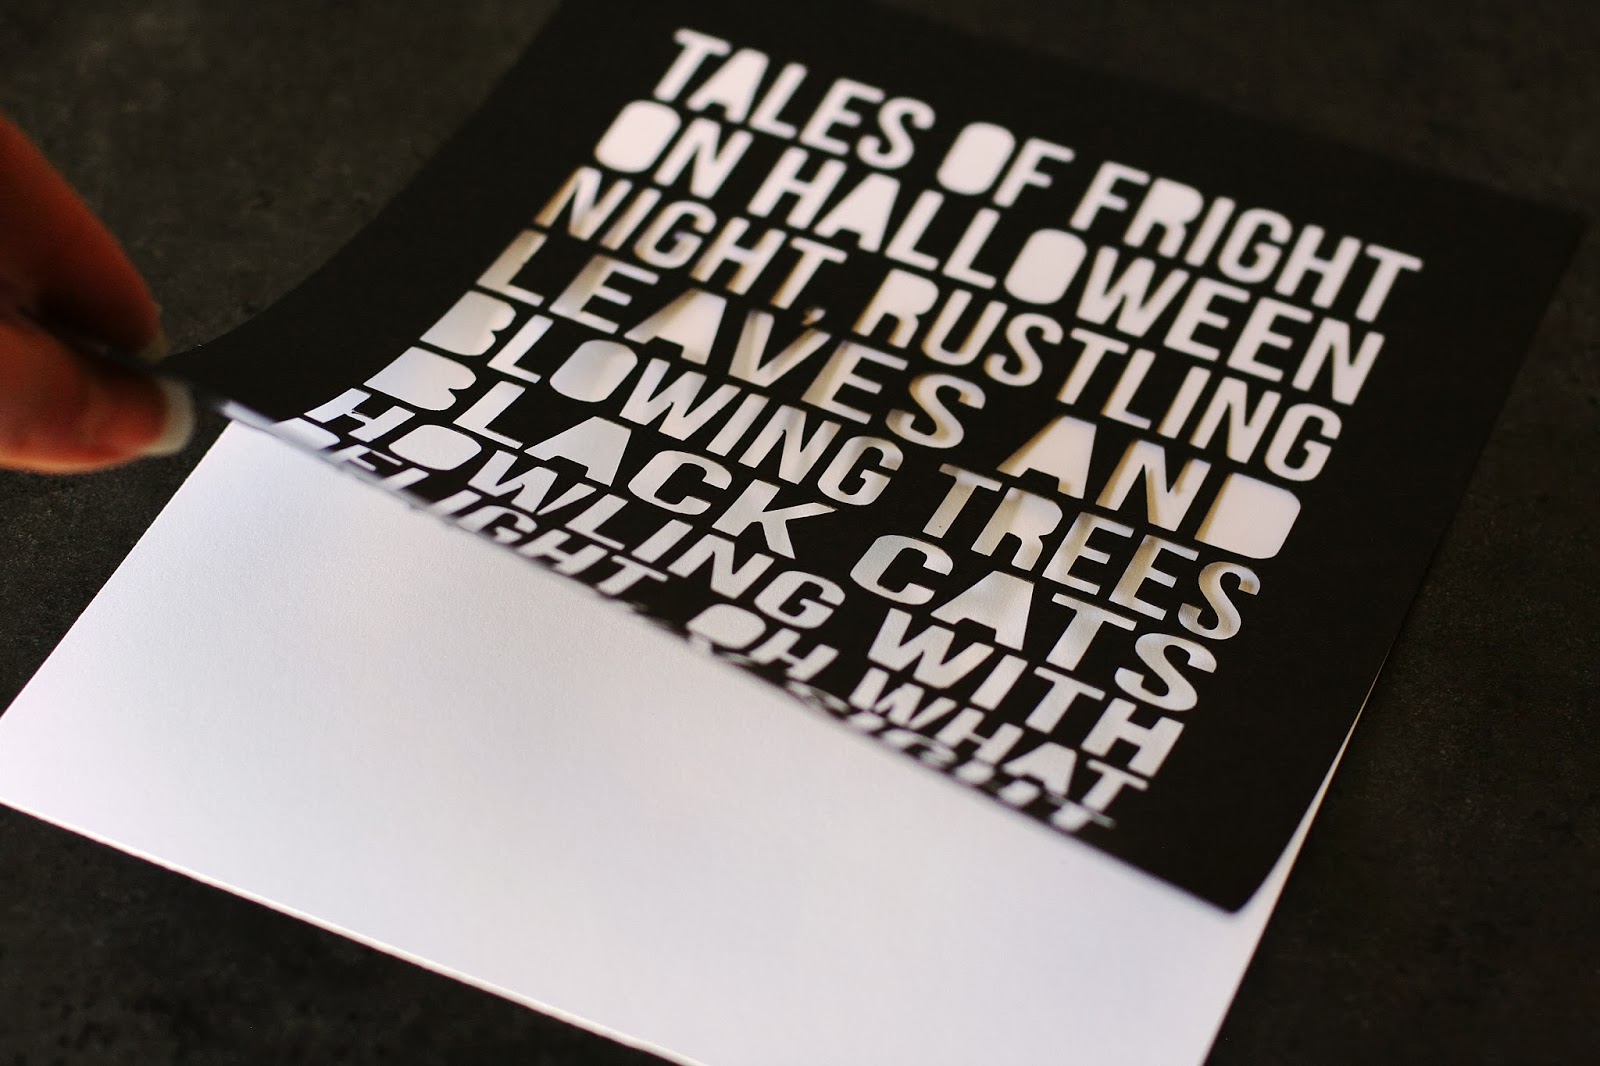 TALES OF FRIGHT
ON HALLOWEEN
NIGHT, RUSTLING
LEAVES AND
BLOWING TREES
BLACK CATS
HOWLING WITH
DELIGHT, OH WHAT